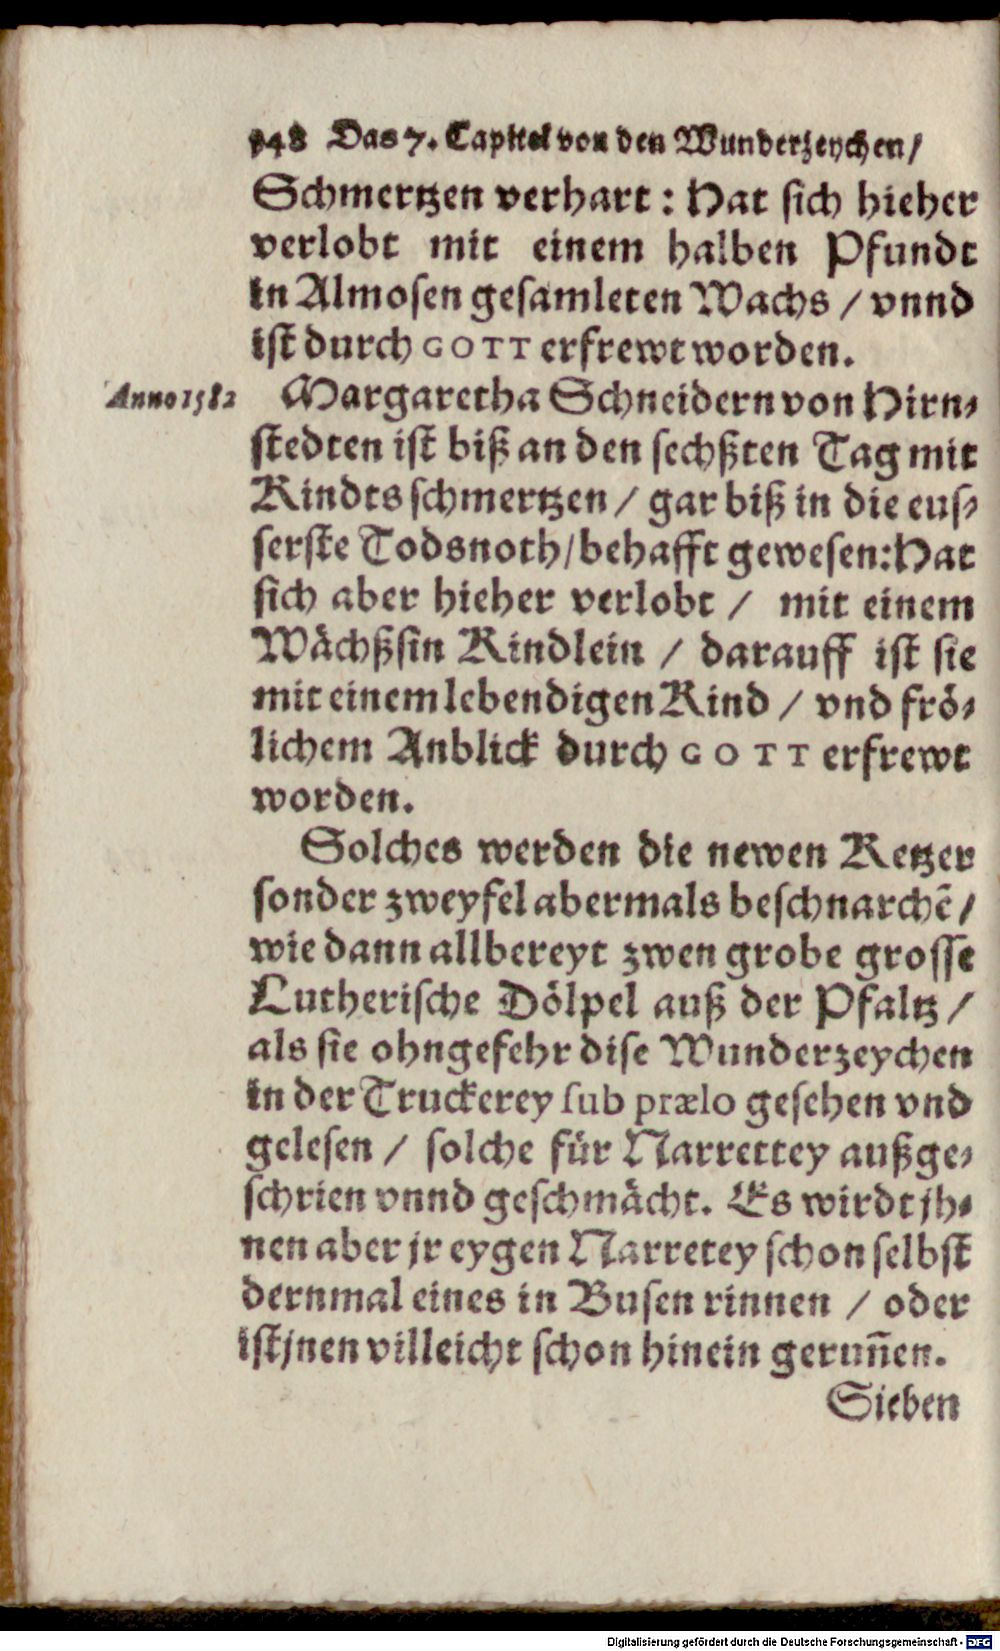 148 Das 7. Capitel von den Wunderzeychen/
Schmertzen verhart: Hat sich hieher
verlobt mit einem halben Pfundt
in Almosen gesamleten Wachs / vnnd
ist durch GOTT erfrewt worden.
Anno 1582
Margaretha Schneidern von Hirn⸗
stedten ist biß an den sechßten Tag mit
Kindtsschmertzen / gar biß in die eus⸗
serste Todsnoth/behafft gewesen:Hat
sich aber hieher verlobt / mit einem
Wächßsin Kindlein / darauff ist sie
mit einem lebendigen Kind / vnd frö⸗
lichem Anblick durch GOTT erfrewt
worden.
Solches werden die newen Ketzer
sonder zweyfel abermals beschnarchẽ/
wie dann allbereyt zwen grobe grosse
Lutherische Dölpel auß der Pfaltz /
als sie ohngefehr dise Wunderzeychen
in der Truckerey sub prælo gesehen vnd
gelesen / solche für Narrettey außge⸗
schrien vnnd geschmächt. Es wirdt jh⸗
nen aber jr eygen Narretey schon selbst
dernmal eines in Busen rinnen / oder
ist jnen villeicht schon hinein geruñen.
Sieben
Digitalisierung gefördert durch die Deutsche Forschungsgemeinschaft - DFG